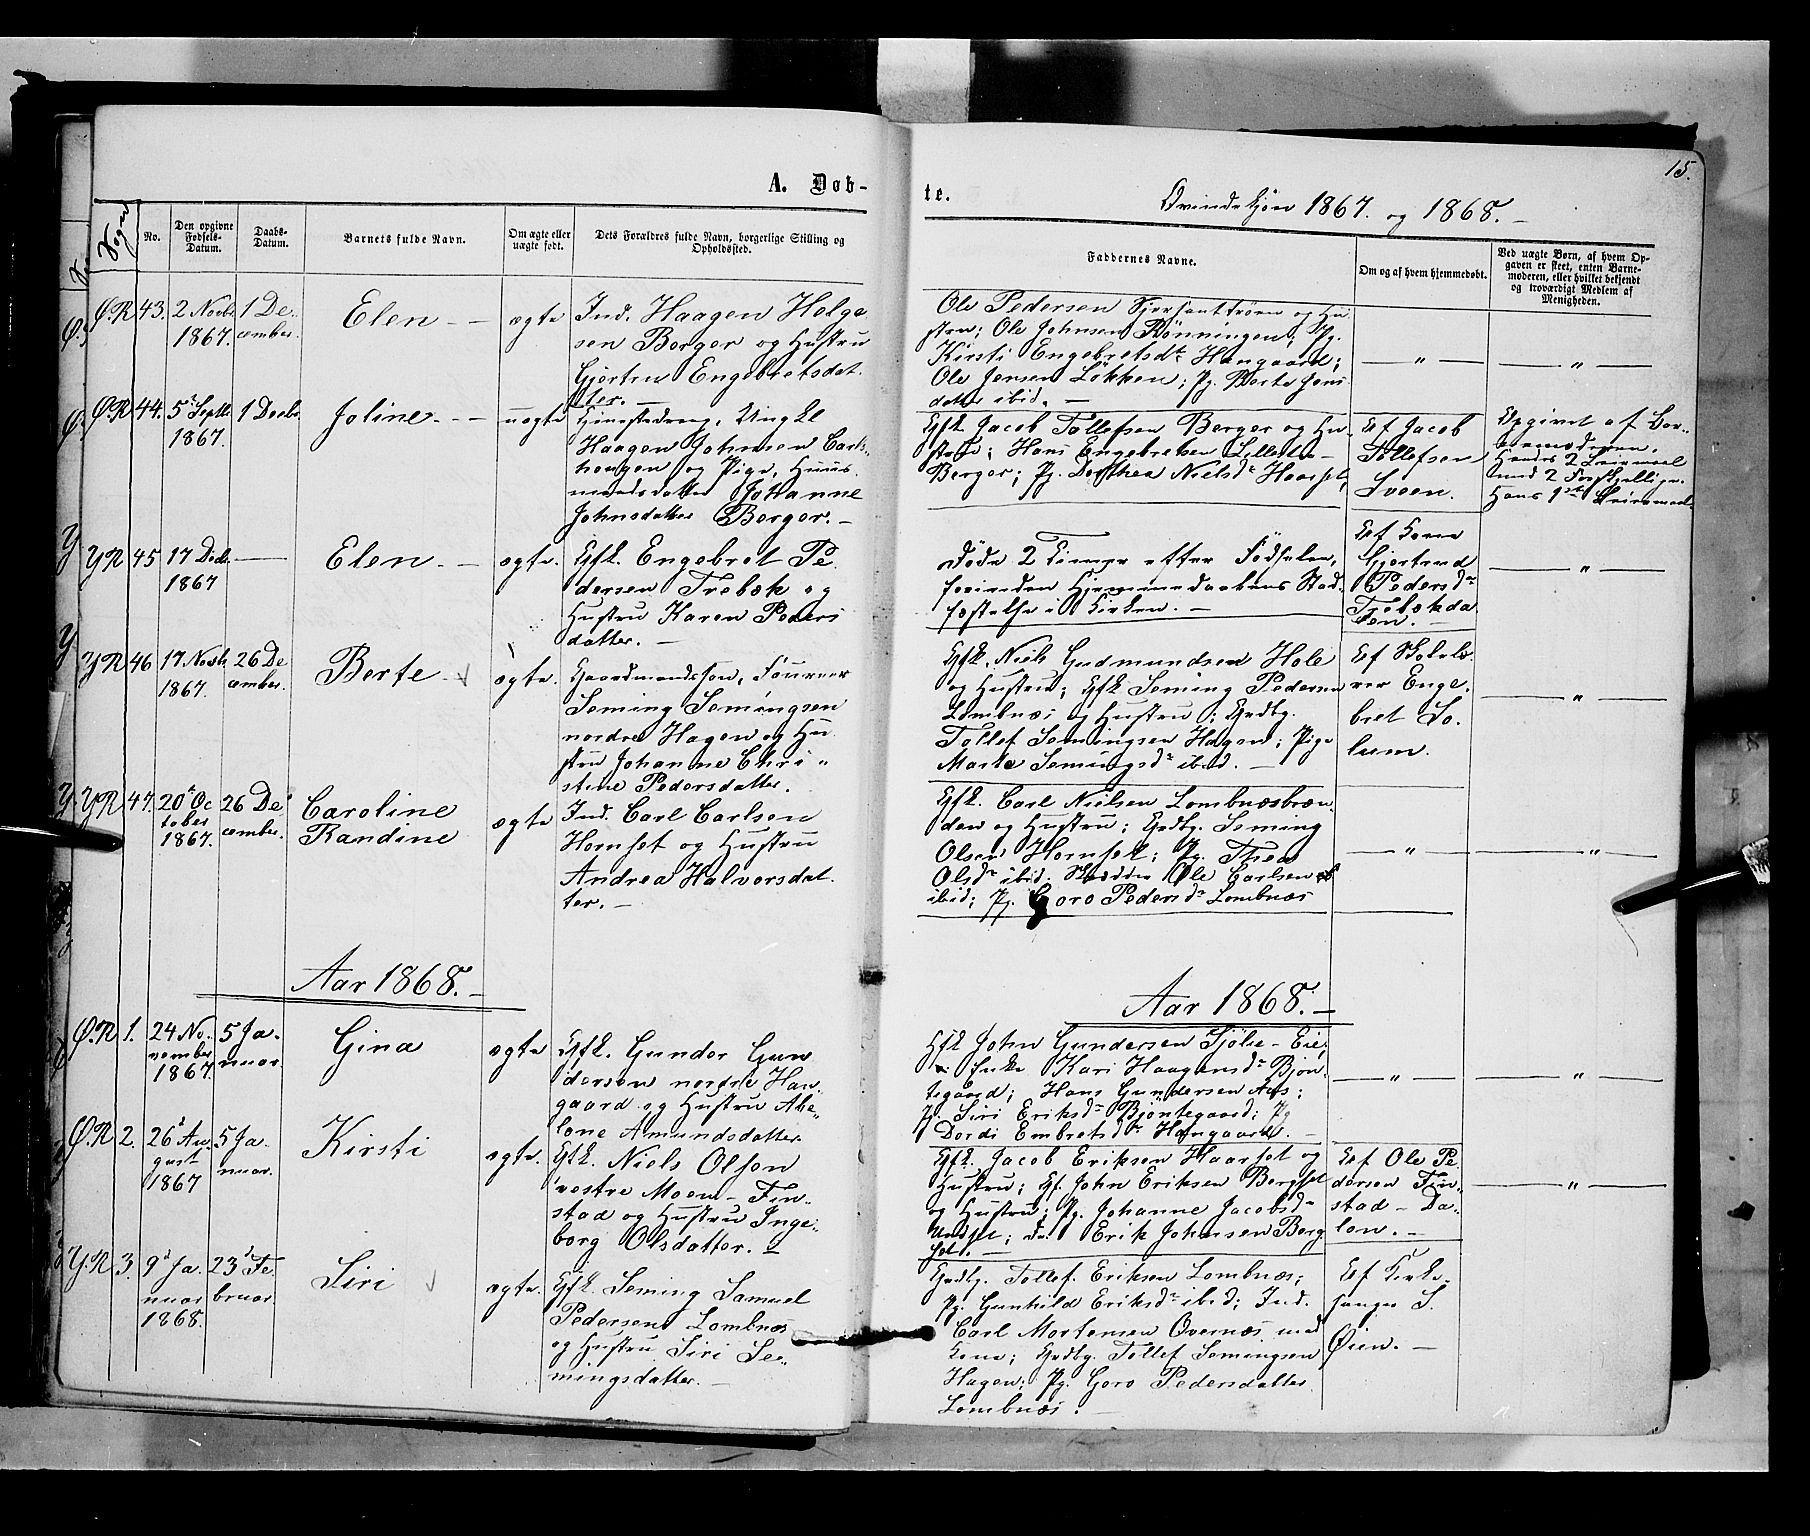 15.
A. Døb-
te.
Qvindekjøn 1867. og 1868. –
Sogn
No.
Den opgivne Fødsels-Datum.
Daabs-Datum.
Barnets fulde Navn.
Om ægte eller uægte født.
Dets Forældres fulde Navn, borgerlige Stilling og Opholdssted.
Faddernes Navne.
Om og af hvem hjemmedøbt.
Ved uægte Børn, af hvem Opgaven er skeet, enten Barnemoderen, eller hvilket bekjendt og troværdigt Medlem af Menigheden.
Ø.R 43. 2 Novbr. 1867. 1 December. Elen – – ægte
Ind. Haagen Helge
sen Berger og Hustru
Gjertru Engebretsdat
ter. –
Ole Pedersen og Hu
stru; Ole Johnsen Rønningen; Pg.
Kirsti Engebretsdr Hangaard;
Ole Jensen Løkken; Pg. Berte Jens
datter ibid. –
– " – – " –
Ø.R 44. 5 Septbr. 1867. 1 Decbr. Joline – – uægte
Ungkl
Haagen Johnsen
haugen og Pige, Huus
mandsdatter Johanne
Johnsdatter Berger. –
Gfk Jacob Tollefsen Berger og Hu
stru; Hans Engebretsen Lilleeie –
Berger; Pg. Dorthea Nielsdr Haarset;
Af Jacob
Tollefsen
Sveen.
Opgivet af Bar
nemoderen.
Hendes 2 Leiermaal
med 2 Forskjellige.
Hans 1ste Leiermaal
Y YR 45 17 Decbr. 1867 — Elen – ægte.
Gfk. Engebret Pe
dersen Trebæk og
Hustru Karen Peders
datter. –
Døde 2 Timer efter Fødselen,
forinden Hjemmedaabens Stad
fæstelse i Kirken. –
Af Kone
Gjertrud
Pedersdr
Trøbækda
len. –
– " –
Y YR 46 17 Novbr. 1867. 26 December. Berte – ægte.
Gaardmandssøn,
Seming Semingsen
nordre Hagen og Hu
stru Johanne Chri"
stine Pedersdatter.
Gfk. Niels Gudmundsen Hole
og Hustru; Gfk Seming Pedersen
Lombnæs og Hustru; Grdbg.
Tollef Semingsen Hagen; Pige
Marte Semingsdr ibid. –
Af Skolelæ
rer Enge
bret So
lum.
– " –
Y YR 47. 20 October 1867. 26 December. Caroline Randine ægte
Ind. Carl Carlsen
Hornset og Hustru
Andrea Halvorsdat
ter. –
Gfk. Carl Nielsen Lombnæsbræn
den og Hustru; Grdbg. Seming
Olsen Hornset; Pg. Thea
Olsdr ibid. Skrædder Ole Carlsen
ibid; Pg. Goro Pedersdr Lombnæs
– " – – " –
Aar 1868. –
Aar 1868. –
Ø.R 1. 24 November 1867. 5 Januar. Gina ægte
Gfk. Gunder Gun
dersen nordre Han
gaard og Hustru Abe
lone Amundsdatter
Gfk John Gundersen Sjølie – Eie;
Enke Kari Haagensdr Bjøn
tegaard; Hans Gundersen Aas;
P. Siri Eriksdr Bjøntegaard; Pg
Dordi Embretsdr Hangaard. –
– " – – " –
Ø.R 2. 26 August 1867 5 Januar. Kirsti ægte.
Gfk. Niels Olsen
vestre Moen – Fin
stad og Hustru Inge
borg Olsdatter. –
Gfk. Jacob Eriksen Haarset og
Hustru; Gf. John Eriksen Bergset
og Hustru; Pg. Johanne Jacobsdr
Undset; do. Erik Johnsen Berg
set. –
Af Ole Pe
dersen Fin
stad – Da
len. –
– " –
Y.R 3. 9 Januar 1868. 23 Februar. Siri ægte.
Gfk. Seming Samuel
Pedersen Lombnæs
og Hustru Siri Se
mingsdatter. –
Grdbg. Tollef Eriksen Lombnæs;
Pg. Gunhild Eriksdr ibid; Ind.
Carl Mortensen Øvernæs med
Kone; Grdbg. Tollef Semingsen
Hagen; Pg. Goro Pedersdatter
Lombnæs. –
Af Kirke
sanger S.
Øien. –